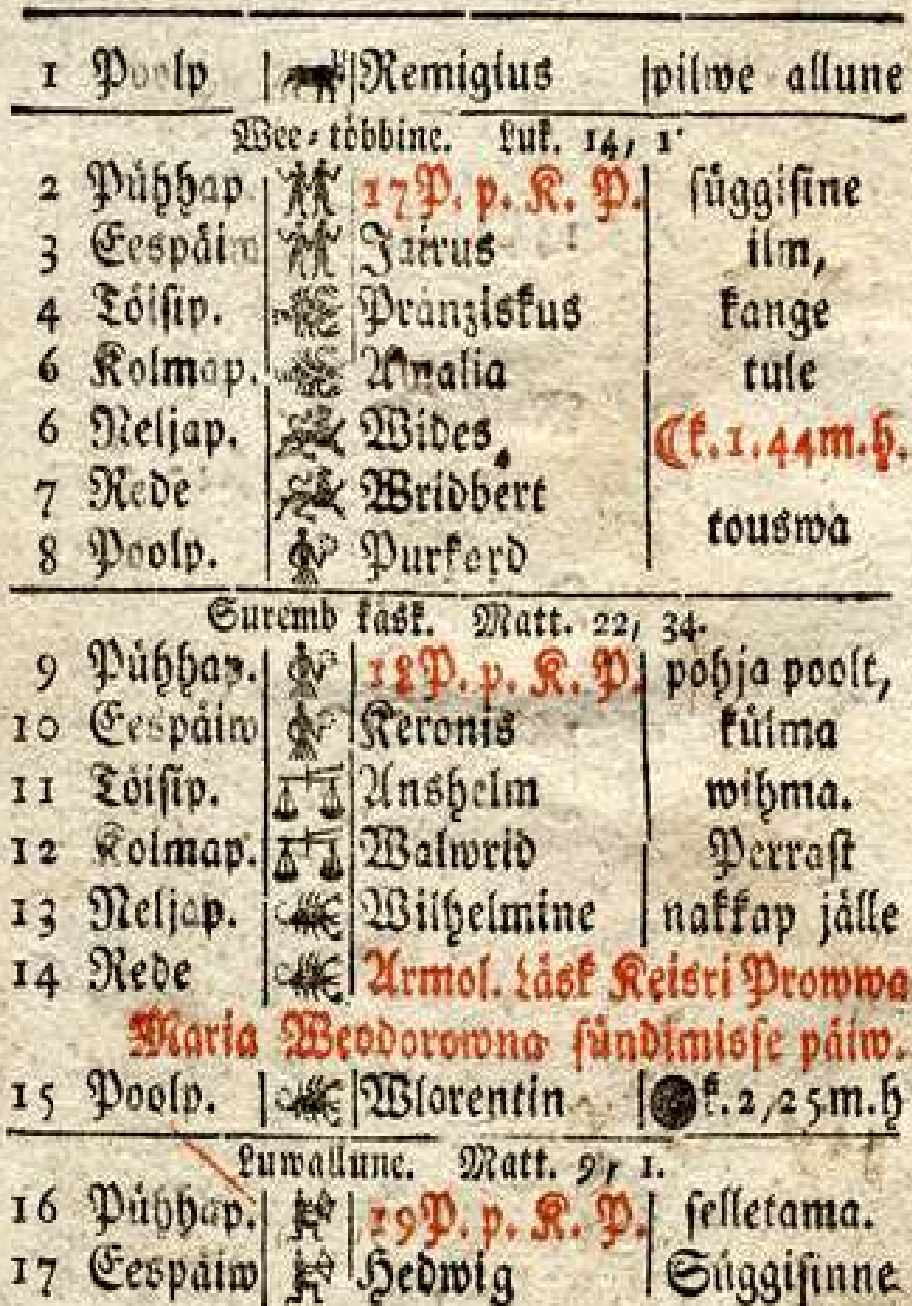 1 Poolp Remigius pilwe allune
Wee-többine. Luk. 14, 1
2 Pühhap 17 P. p. K. P. süggisine
3 Eespäiw Jairus ilm,
4 Töisip. Pranziskus kange
6 Kolmap. Amalia tule
6 Neljap. Wides ☾k. 1. 44 m. h.
7 Rede Wridbert
touswa
8 Poolp. Purkard
Suremb käsk. Matt. 22, 34.
9 Pühhap. 18 P. p. K. P. pohja poolt,
10 Eespäiw Keronis külma
11 Töisip. Anshelm wihma.
12 Kolmap. Walwrid Perrast
13 Neljap. Wilhelmine nakkap jälle
14 Rede Armol. Läsk Keisri Prowwa
Maria Weodorowna sündimisse päiw.
15 Poolp. Wlorentin ●k. 2, 25 m. h
Luwallune. Matt. 9, 1.
16 Pühhap. 19 P. p. K. P. selletama.
17 Eespäiw Hedwig Süggisinne